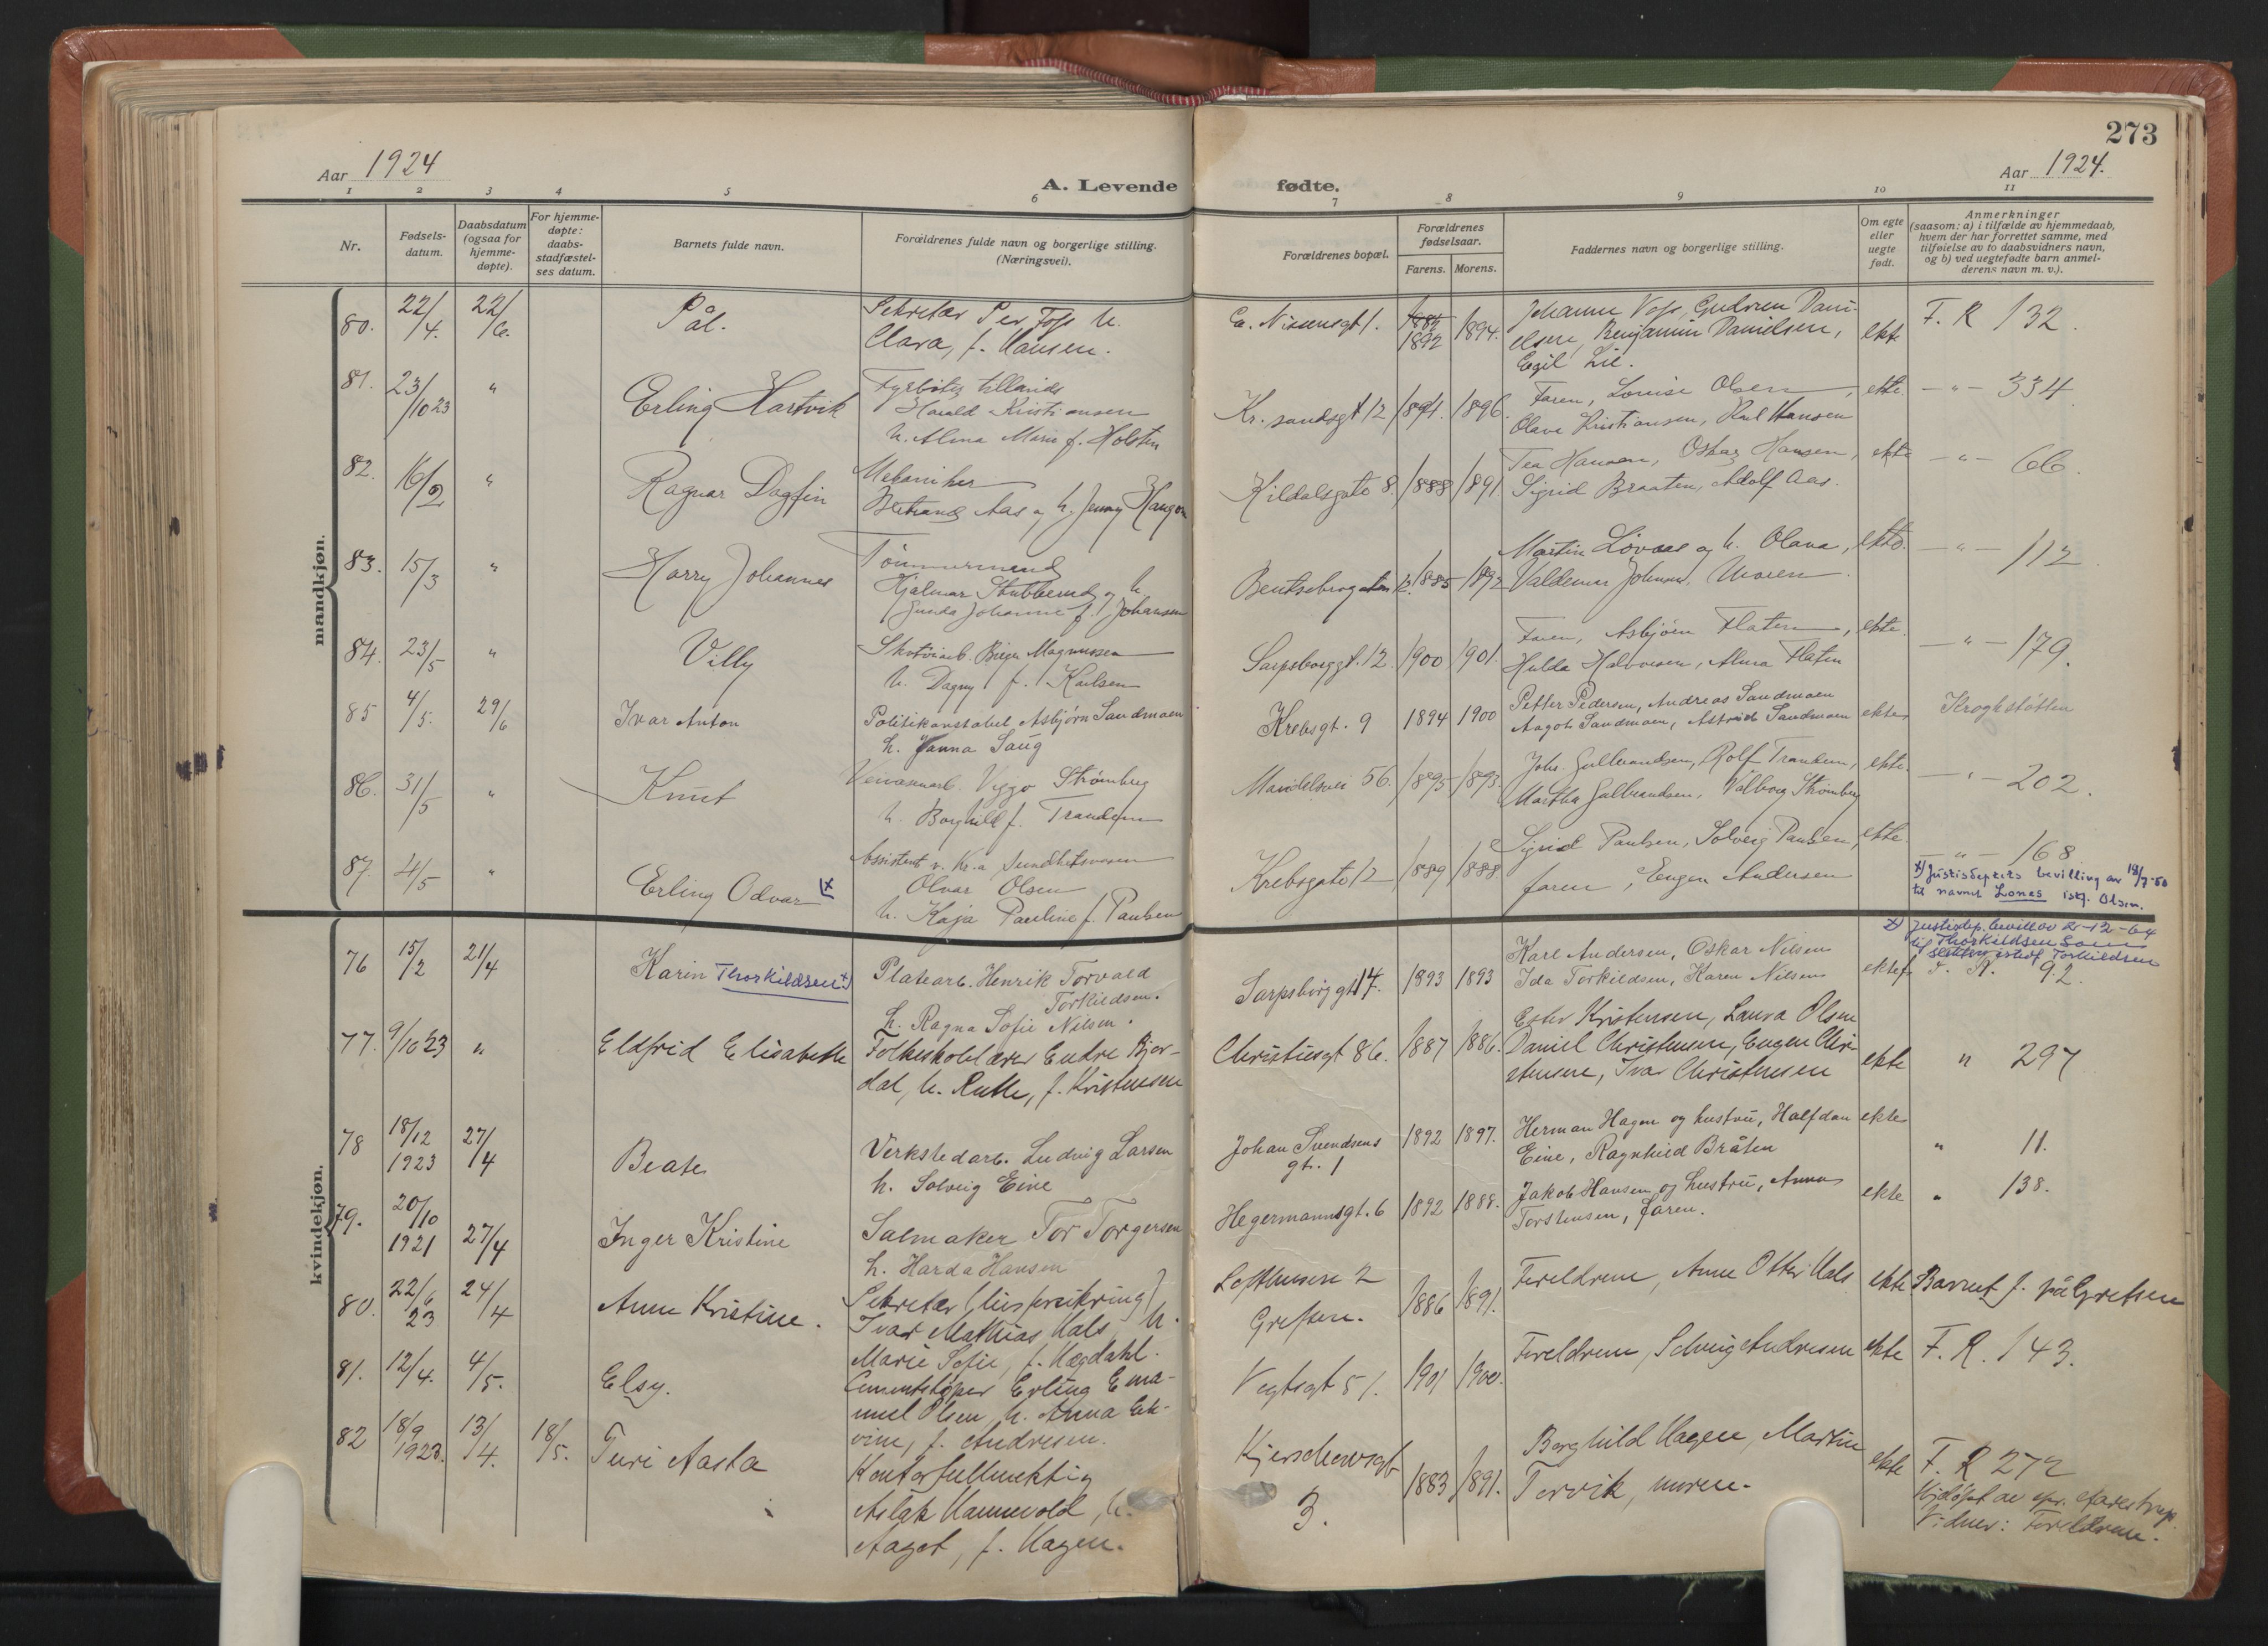 273
Aar 1924
Aar 1924.
A. Levende fødte.
1 2 3 4 5 6 7 8 9 10 11
Nr.
Fødsels-
datum.
Daabsdatum
(ogsaa for
hjemme-
døpte).
For hjemme-
døpte:
daabs-
stadfæstel-
ses datum.
Barnets fulde navn.
Forældrenes fulde navn og borgerlige stilling.
(Næringsvei).
Forældrenes bopæl.
Forældrenes
fødselsaar.
Farens. Morens.
Faddernes navn og borgerlige stilling.
Om egte
eller
uegte
født.
Anmerkninger
(saasom: a) i tilfælde av hjemmedaab,
hvem der har forrettet samme, med
tilføielse av to daabsvidners navn,
og b) ved uegtefødte barn anmel-
derens navn m. v.).
mandkjøn.
80. 22/4. 22/6. Pål.
Sekretær Per Foss h.
Clara, f. Hansen.
Nissensgt 1. 1892 1894.
Johanne Voss, Gudrun Dani-
elsen, Benjamin Danielsen,
Egil Lie.
ekte F. R 132.
81. 23/10 23 " Erling Hartvik
Fyrbøter tillands
Harald Kristiansen
h. Alma Marie f. Holsten
Kr. sandsgt 12 1894. 1896.
Faren, Louise Olsen,
Olava Kristiansen, Karl Hansen
ekte - " - 334
82. 16/2 " Ragnar Dagfin
Mekaniker
Bertrand Aas og h. Jenny Haugen
Kildalsgate 8. 1888 1891.
Tea Hansen, Oskar Hansen,
Sigrid Braaten, Adolf Aas.
ekte - " - 66.
83. 15/3 " Harry Johannes
Tømmermand
Hjalmar Stubberud og h
Gunda Johanne f. Johansen
Bentsebrogaten 12. 1885 1892
Martin Løvaas og h. Olava,
Valdemar Johansen, Moren.
ekte. - " - 112
84. 23/5 " Villy
Skotøiarb. Birger Magnussen
h. Dagny f. Karlsen
Sarpsborggt. 12. 1900 1901.
Faren, Asbjørn Flaten,
Hulda Halvorsen, Alma Flaten
ekte. - " - 179.
85 4/5. 29/6 Ivar Anton
Politikonstabel Asbjørn Sandmoen
h. Janna Saug
Krebsgt. 9 1894 1900
Petter Pedersen, Andreas Sandmoen
Aagot Sandmoen, Astrid Sandmoen
ekte Kroghstøtten
86. 31/5 " Knut
Viggo Strømberg
h. Borghild f. Trandem
Maridelsvei 56. 1895 1893.
Johs. Gulbrandsen, Rolf Trandem,
Martha Gulbrandsen, Valborg Strømberg
ekte. - " - 202.
87. 4/5 " Erling Odvar x
Assistent v. Kr.a Sundhetsvæsen
Olvar Olsen
h. Kaja Pauline f. Paulsen
Krebsgate 12 1889 1888.
Sigrid Paulsen, Solveig Paulsen,
faren, Eugen Andersen
ekte. - " - 168
x) Justisdeptets bevilling av 18/7-50
til navnet Lones istf. Olsen.
kvindekjøn.
x) Justisdep. bevill av 2-12-64
til Thorkildsen som
slektsn istedf Torkildsen
76 15/2 21/4 Karin Thorkildsen x)
Platearb. Henrik Torvald
Torkildsen.
h. Ragna Sofie Nilsen.
Sarpsborg gt 17. 1893 1893
Karl Andersen, Oskar Nilsen
Ida Torkildsen, Karen Nilsen
ektef F. R. 92.
77. 9/10 23 " Eldfrid Elisabeth
Folkeskolelærer Endre Bjer-
dal, h. Ruth, f. Kristensen
Christiesgt 86. 1887 1886.
Ester Kristensen, Laura Olsen
Daniel Christensen, Eugen Chri-
stensen, Ivar Christensen
ekte " 297
78 18/12 1923 27/4 Beate
Verkstedarb. Ludvig Larsen
h. Solveig Eine
Johan Svendsens
gt. 1 1892 1897.
Herman Hagen og hustru, Halfdan
Eine, Ragnhild Bråten
ekte " 11.
79. 20/10 1921 27/4 Inger Kristine
Salmaker Tor Torgersen
h. Harda Hansen
Hegermannsgt. 6 1892 1888.
Jakob Hansen og hustru, Anna
Torstensen, faren.
ekte " 138.
80. 22/6 23 24/4 Anne Kristine.
Sekretær (livsforsikring)
Ivar Mathias Hals, h.
Marie Sofie, f. Hegdahl.
Lofthusvn 2
Grefsen. 1886 1891.
Foreldrene, Anne Otter Hals
ekte Barnet f. på Grefsen
81. 12/4. 4/5. Elsy.
Cementstøper Erling Ema-
nuel Olsen, h. Anna Ek-
vine, f. Andresen.
Vogtsgt 51. 1901 1900.
Foreldrene, Solveig Andresen
ekte F. R. 143.
82 18/9 1923. 13/4. 18/5. Turi Aasta
Kontorfullmektig
Aslak Hannevold, h.
Aagot, f. Hagen.
Kjerschowsgt
3. 1883 1891.
Borghild Hagen, Martin
Torvik, moren.
ekte F. R 272
Vidner: Foreldrene.